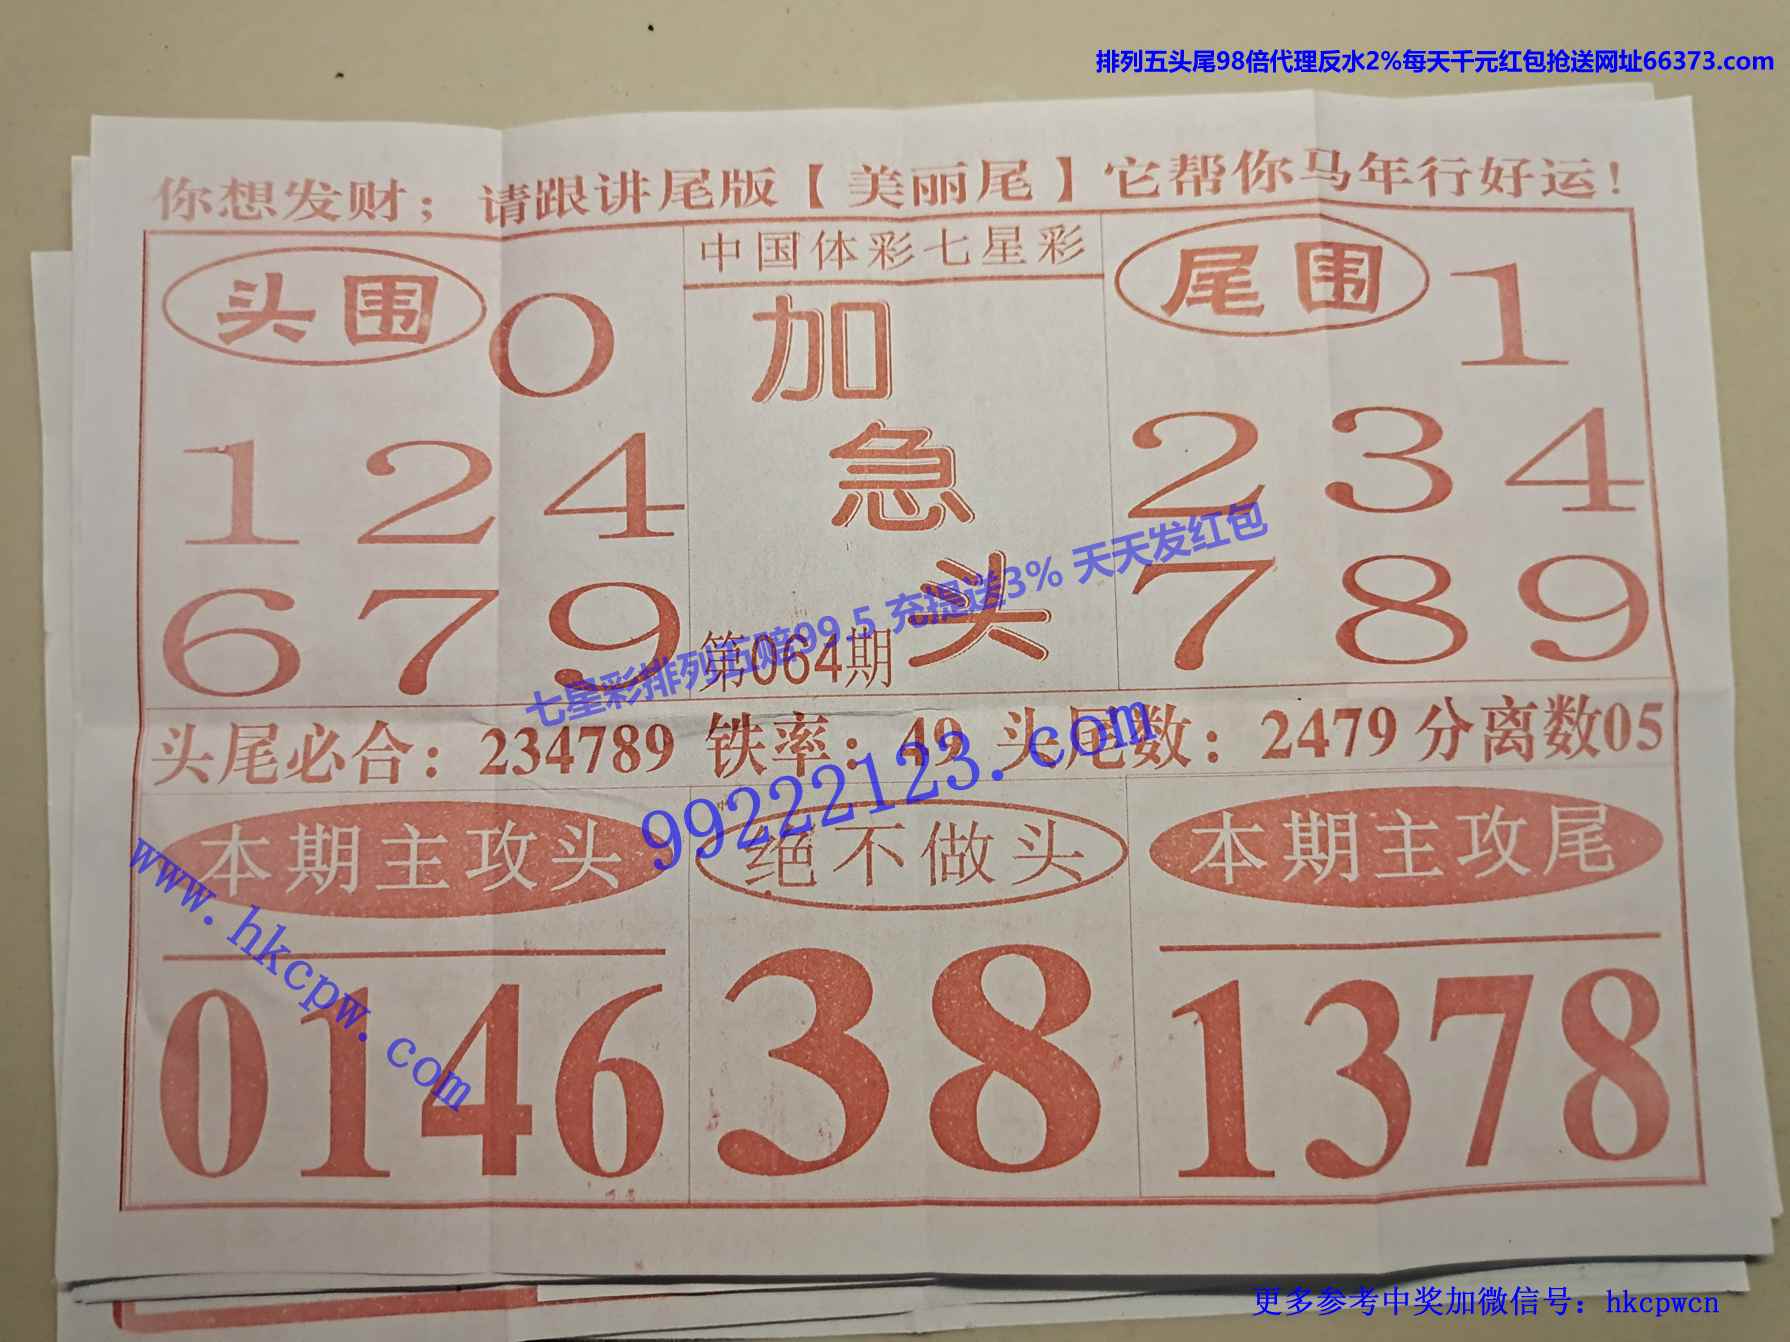 排列五头尾98倍代理反水2%每天千元红包抢送网址66373.com
你想发财；请跟讲尾版【美丽尾】它帮你马年行好运！
头围 0
1 2 4
6 7 9
中国体彩七星彩
加
急
头
第064期
尾围 1
2 3 4
7 8 9
七星彩排列五赔99.5 充提送3% 天天发红包
头尾必合：234789 铁率：49 头尾数：2479 分离数05
99222123.com
本期主攻头
0146
绝不做头
38
本期主攻尾
1378
www.hkcpw.com
更多参考中奖加微信号：hkcpwcn